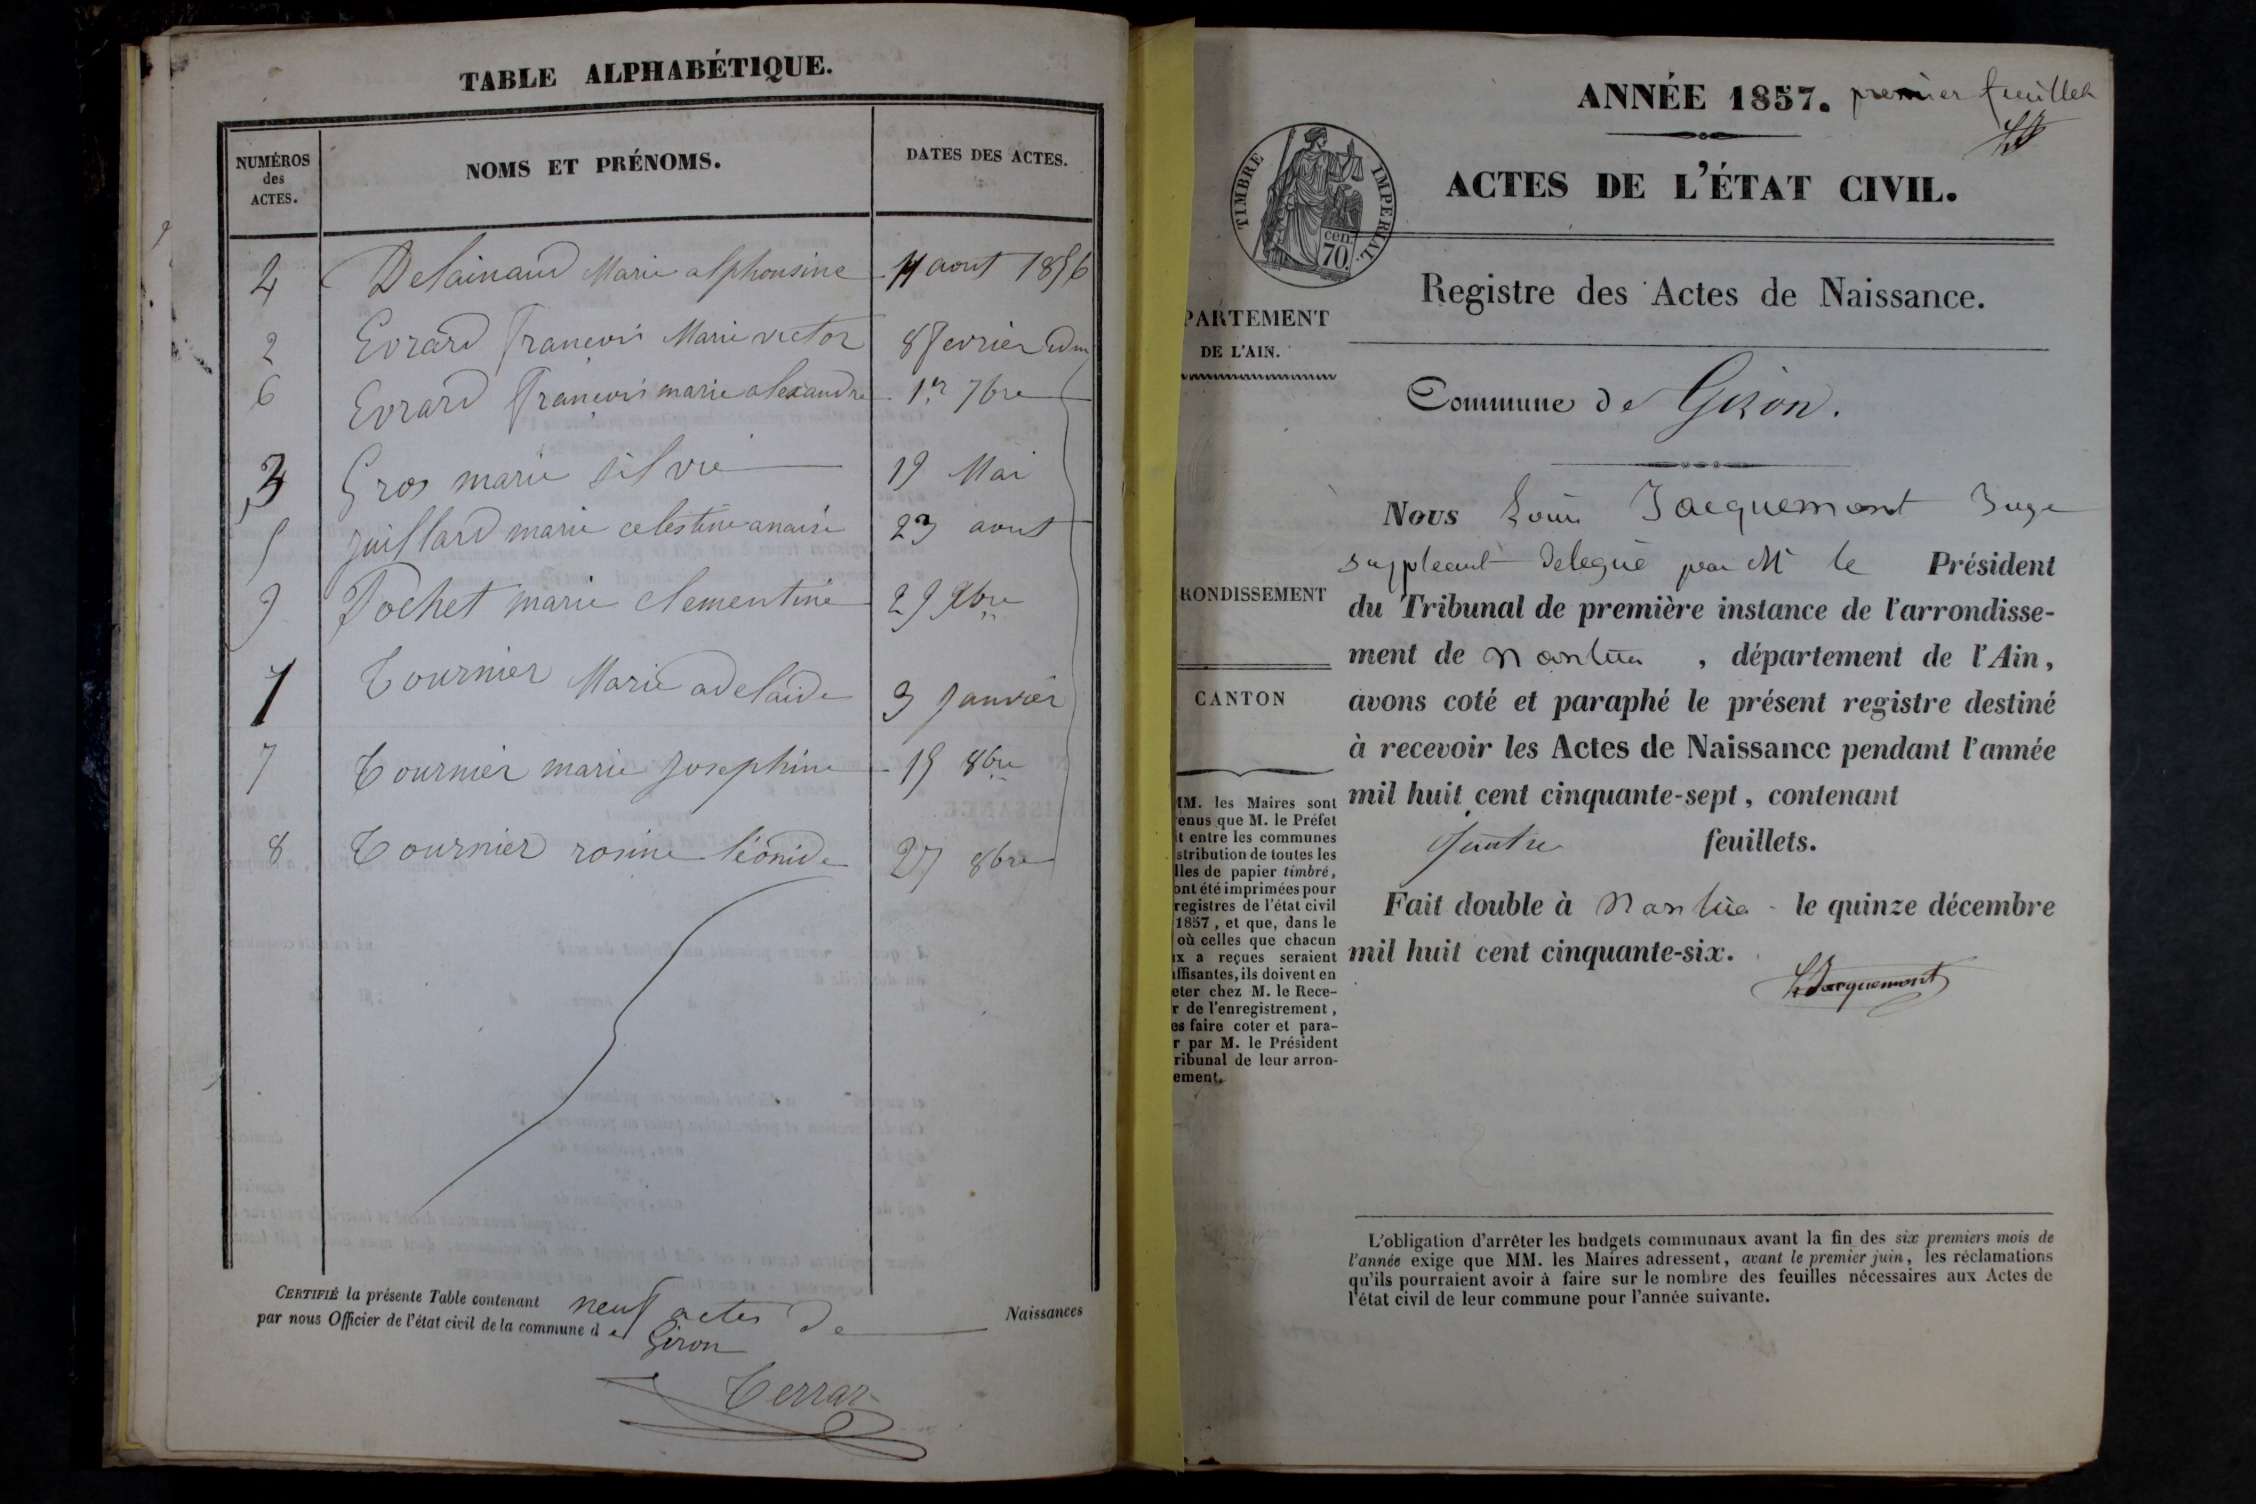 TABLE ALPHABÉTIQUE.
NUMÉROS des ACTES.
NOMS ET PRÉNOMS.
DATES DES ACTES.
4 Delainaud Marie alphonsine 11 aout 1856
2 Evrard François Marie victor 8 fevrier
6 Evrard François marie alexandre 1er 7bre
3 Gros marie silvie 19 Mai
5 juillard marie celestine anaise 23 aout
9 Pochet marie clementine 29 Xbre
1 Tournier Marie adelaide 3 Janvier
7 Tournier marie josephine 15 8bre
8 Tournier rosine léonide 27 8bre
CERTIFIÉ la présente Table contenant neuf actes de Naissances
par nous Officier de l'état civil de la commune de Giron
Terraz
ANNÉE 1857. premier feuillet
LJ
ACTES DE L'ÉTAT CIVIL.
TIMBRE IMPERIAL.
cen.
70.
Registre des Actes de Naissance.
PARTEMENT
DE L'AIN.
Commune de Giron.
Nous Louis Jacquemont Juge
suppleant delegué par Mr le Président
du Tribunal de première instance de l'arrondisse-
ment de Nantua, département de l'Ain,
avons coté et paraphé le présent registre destiné
à recevoir les Actes de Naissance pendant l'année
mil huit cent cinquante-sept, contenant
quatre feuillets.
Fait double à Nantua le quinze décembre
mil huit cent cinquante-six.
L Jacquemont
RONDISSEMENT
CANTON
MM. les Maires sont
enus que M. le Préfet
it entre les communes
stribution de toutes les
lles de papier timbré,
ont été imprimées pour
registres de l'état civil
1857, et que, dans le
où celles que chacun
ux a reçues seraient
uffisantes, ils doivent en
eter chez M. le Rece-
r de l'enregistrement,
es faire coter et para-
r par M. le Président
ribunal de leur arron-
ement.
L'obligation d'arrêter les budgets communaux avant la fin des six premiers mois de
l'année exige que MM. les Maires adressent, avant le premier juin, les réclamations
qu'ils pourraient avoir à faire sur le nombre des feuilles nécessaires aux Actes de
l'état civil de leur commune pour l'année suivante.